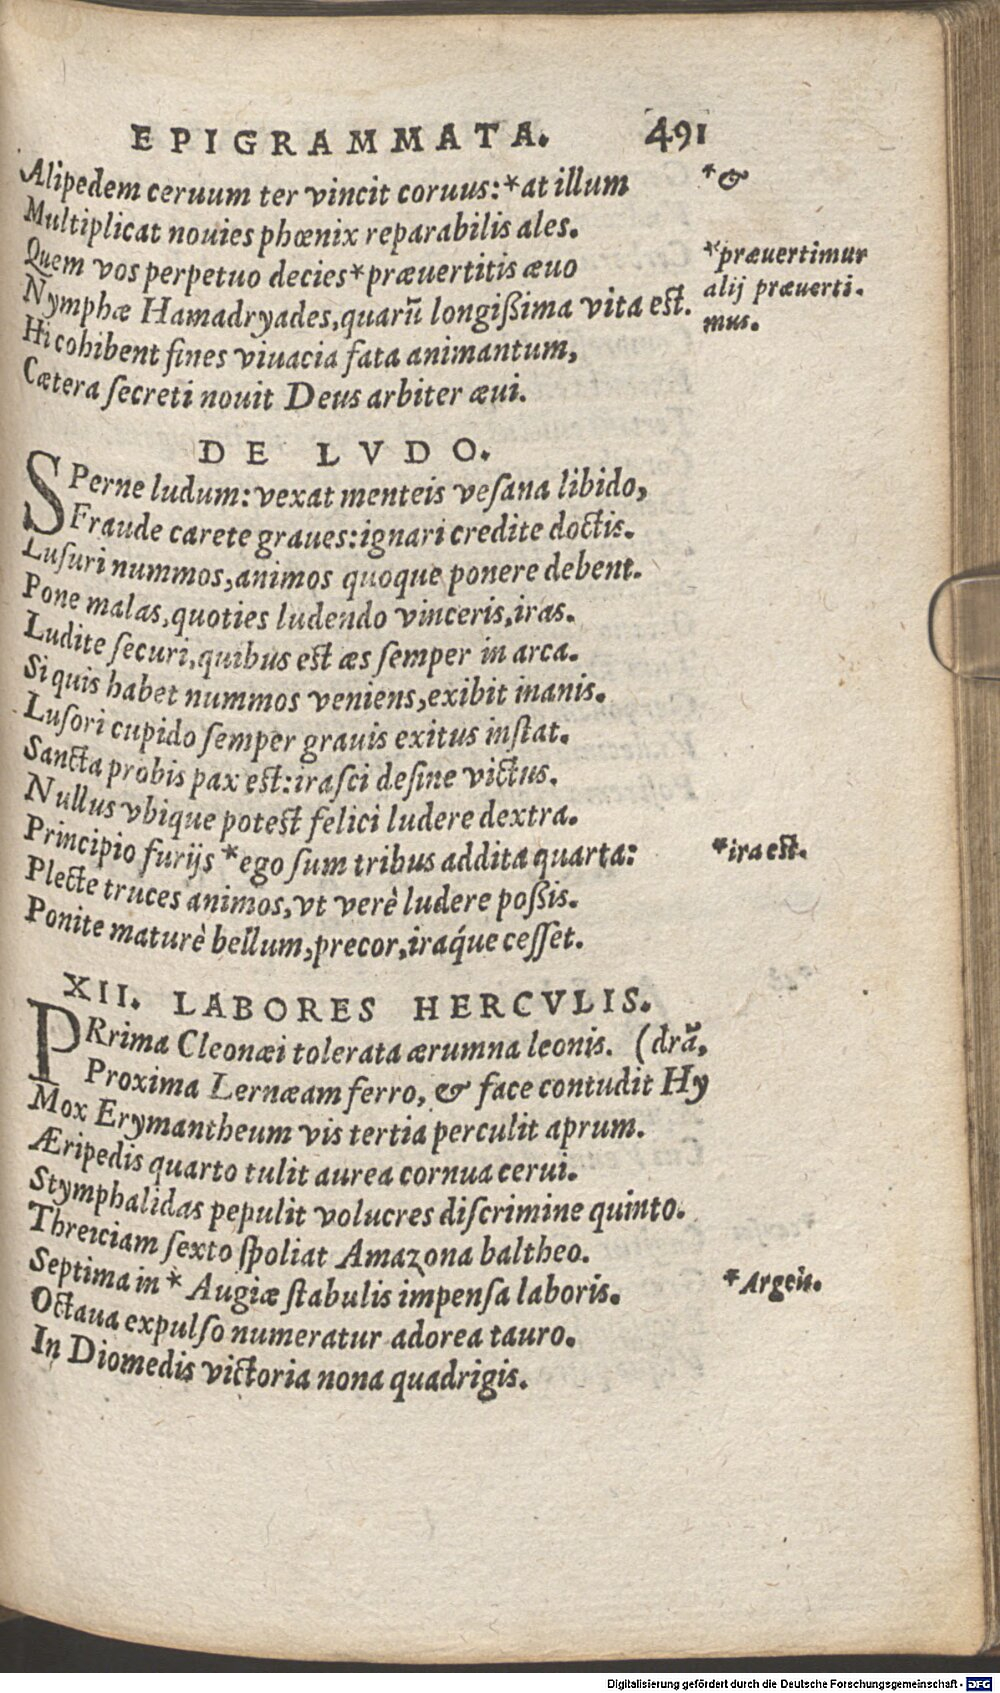 EPIGRAMMATA. 491
Alipedem ceruum ter vincit coruus:*at illum *&
Multiplicat nouies phœnix reparabilis ales.
Quem vos perpetuo decies*præuertitis æuo *præuertimur
Nymphæ Hamadryades,quarũ longißima vita est. alij præuerti-
Hi cohibent fines viuacia fata animantum, mus.
Cætera ſecreti nouit Deus arbiter æui.
DE LVDO.
SPerne ludum: vexat menteis veſana libido,
Fraude carete graues:ignari credite doctis.
Luſuri nummos,animos quoque ponere debent.
Pone malas,quoties ludendo vinceris,iras.
Ludite ſecuri,quibus est æs ſemper in arca.
Si quis habet nummos veniens,exibit inanis.
Luſori cupido ſemper grauis exitus inſtat.
Sancta probis pax est:iraſci deſine victus.
Nullus vbique potest felici ludere dextra.
Principio furijs *ego ſum tribus addita quarta: *ira est.
Plecte truces animos,vt verè ludere poßis.
Ponite maturè bellum,precor,iraq́ue ceſſet.
XII. LABORES HERCVLIS.
PRrima Cleonæi tolerata ærumna leonis. (drã,
Proxima Lernæam ferro, & face contudit Hy
Mox Erymantheum vis tertia perculit aprum.
Æripedis quarto tulit aurea cornua cerui.
Stymphalidas pepulit volucres diſcrimine quinto.
Threiciam ſexto ſpoliat Amazona baltheo.
Septima in * Augiæ ſtabulis impenſa laboris. *Argeis.
Octaua expulſo numeratur adorea tauro.
In Diomedis victoria nona quadrigis.
Digitalisierung gefördert durch die Deutsche Forschungsgemeinschaft - DFG